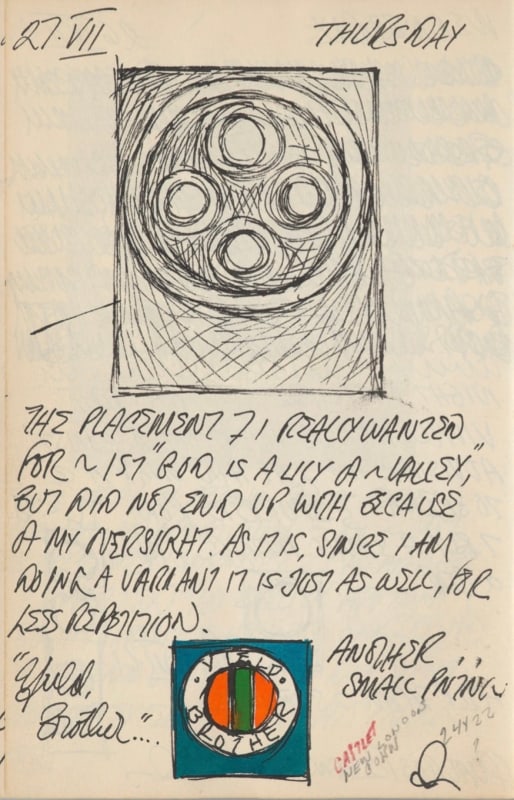 27·VII THURSDAY
THE PLACEMENT 7 I REALLY WANTED
FOR ~ 1ST "GOD IS A LILY A ~ VALLEY,"
BUT DID NOT END UP WITH BECAUSE
A MY OVERSIGHT. AS IT IS, SINCE I AM
DOING A VARIANT IT IS JUST AS WELL, FOR
LESS REPETITION.
"Yield,
Brother"....
·YIELD·
BROTHER
ANOTHER
SMALL
NEW LONDON
CONN
24X22
?